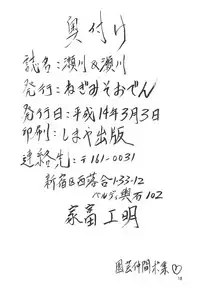 奥付け
誌名：瀬川&瀬川
発行：ねぎみそおでん
発行日：平成14年3月3日
印刷：しまや出版
連絡先：〒161-0031
新宿区西落合1-33-12
ベルデ奥石102
家畜工明
園芸仲間求集♡
18